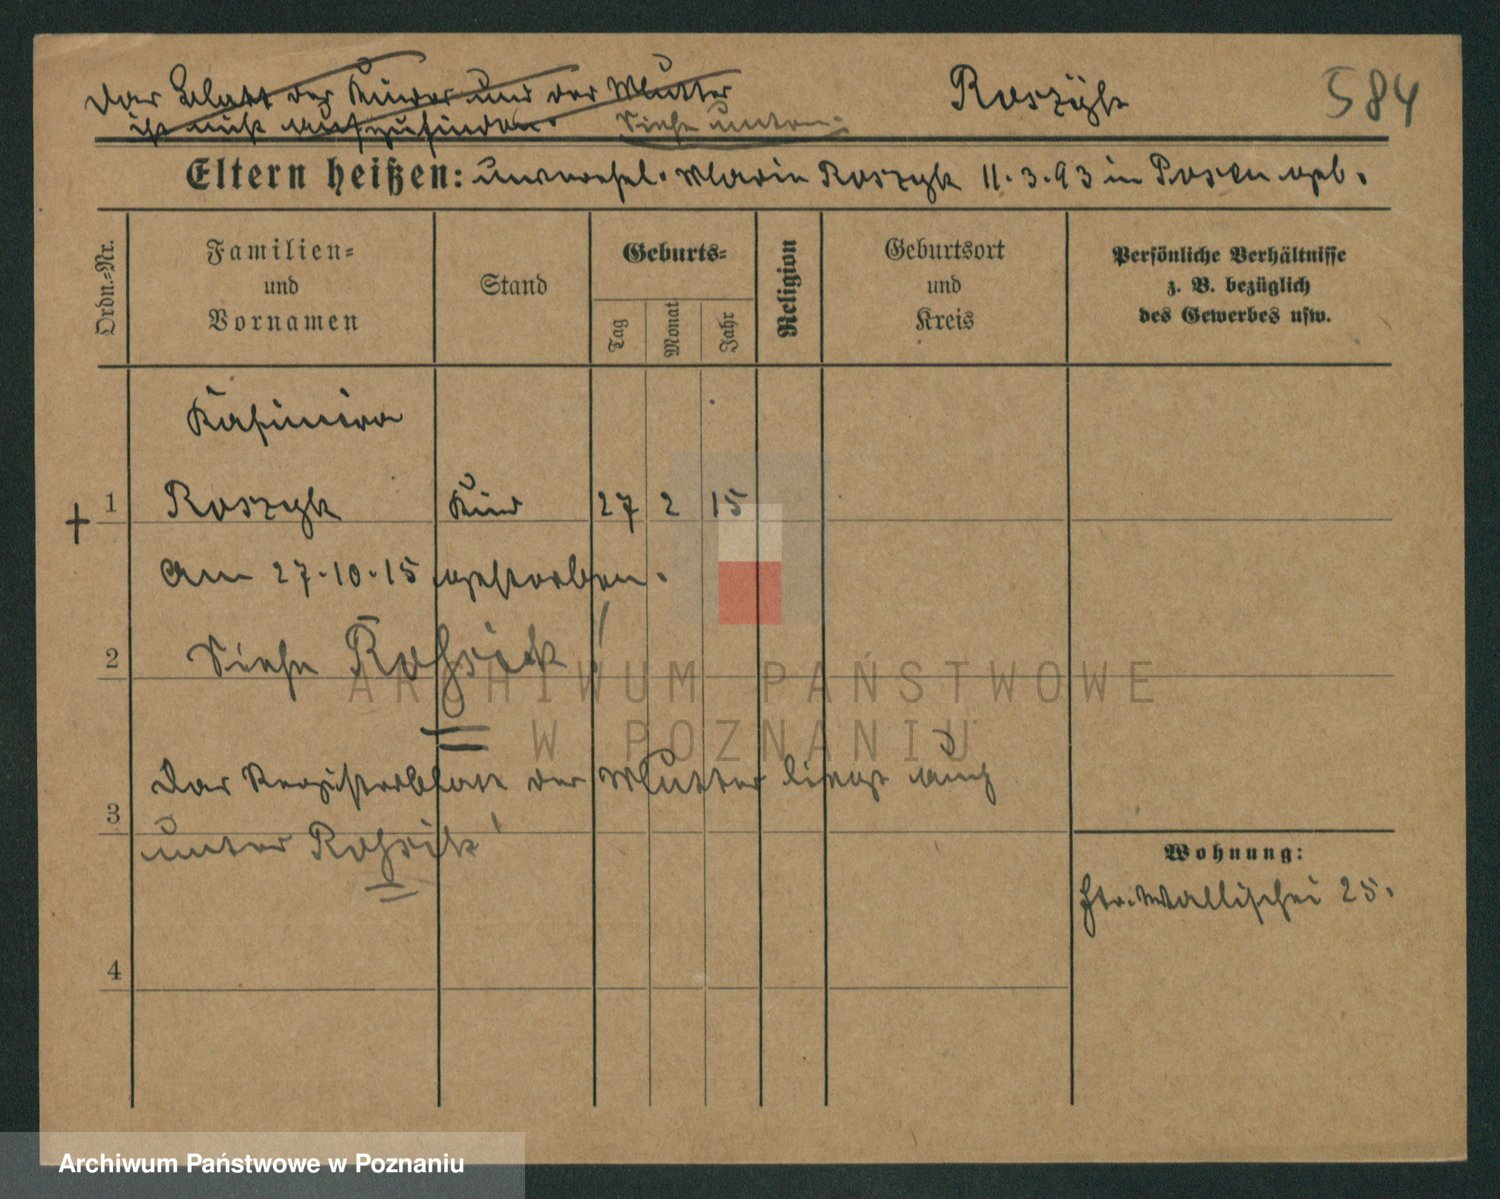 Das Blatt des Kindes und der Mutter
ist nicht aufzufinden. Siehe unten.
Roszyk
584
Eltern heißen: unverehel. Maria Roszyk 11.3.93 in Posen geb.
Ordn.-Nr.
Familien-
und
Vornamen
Stand
Geburts-
Tag
Monat
Jahr
Religion
Geburtsort
und
Kreis
Persönliche Verhältnisse
z. B. bezüglich
des Gewerbes usw.
Kasimira
+ 1 Roszyk Kind 27 2 15
Am 27.10.15 gestorben.
2 Siehe Rohsik!
Das Registerblatt der Mutter liegt auch
3
unter Rohsik!
Wohnung:
Str. Wallischei 25.
4
ARCHIWUM PAŃSTWOWE
W POZNANIU
Archiwum Państwowe w Poznaniu